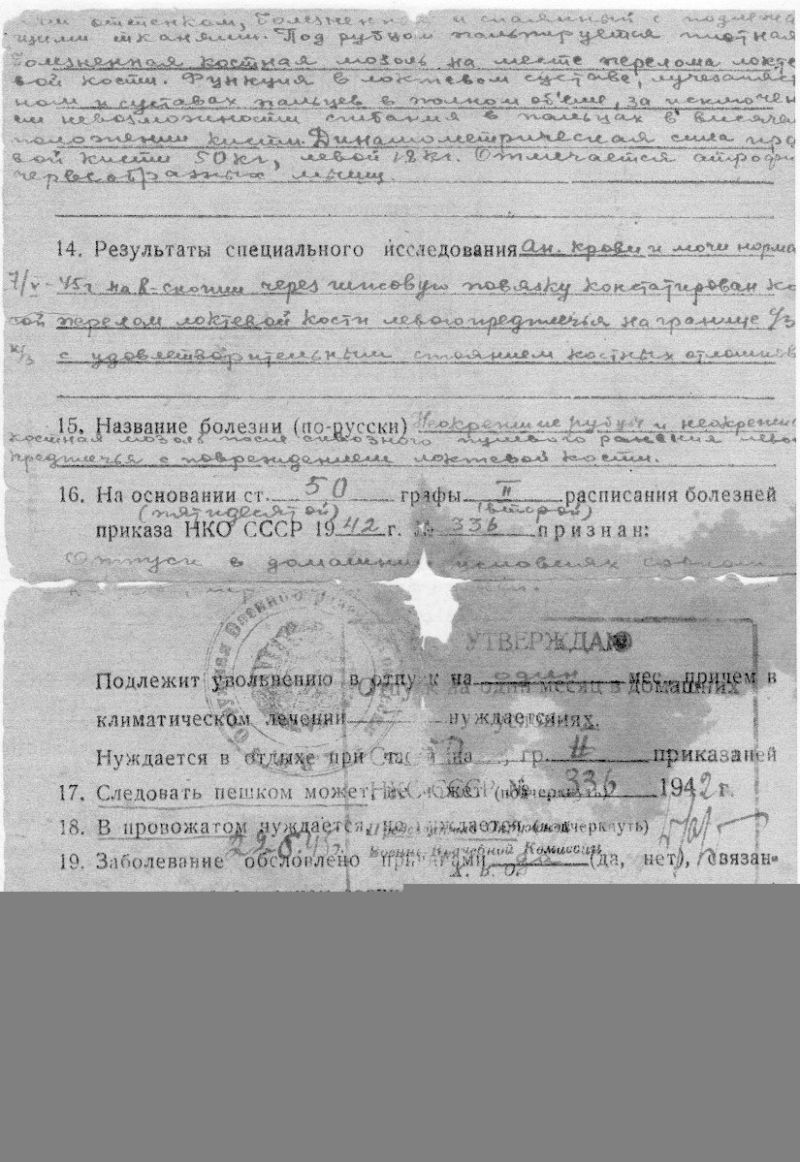 оттенком, болезненный и спаянный с подлежа
щими тканями. Под рубцом пальпируется плотная
болезненная костная мозоль на месте перелома локте
вой кости. Функция в локтевом суставе, лучезапяст
ном и суставах пальцев в полном об'еме, за исключен
ем невозможности сгибания в пальцах в висячем
положении кисти. Динамометрическая сила пра
вой кисти 50 кг, левой 12 кг. Отмечается атрофия
червеобразных мышц.
14. Результаты специального исследования Ан. крови и мочи норма
7/V-45г на R-скопии через гипсовую повязку констатирован ко
сой перелом локтевой кости левого предплечья на границе с/3
н/3 с удовлетворительным стоянием костных отломков
15. Название болезни (по-русски) Неокрепшие рубцы и неокрепш
костная мозоль после сквозного пулевого ранения лево
предплечья с повреждением локтевой кости.
16. На основании ст. 50 графы II расписания болезней
(пятидесятой) (второй)
приказа НКО СССР 1942 г. № 336 признан:
Отпуск в домашних условиях сроком
УТВЕРЖДАЮ
Подлежит увольнению в отпуск на один мес., причем в
Отпуск на один месяц в домашних
климатическом лечении нуждается
условиях.
Нуждается в отдыхе при части на
Ст. , гр. II приказаней
17. Следовать пешком может, не может (подчеркнуть)
НКО СССР № 336 1942 г.
18. В провожатом нуждается, не нуждается (подчеркнуть)
22.5.45г.
Военно-Врачебной Комиссии
19. Заболевание обсловлено причинами да (да, нет), связан-
Х. В. О.